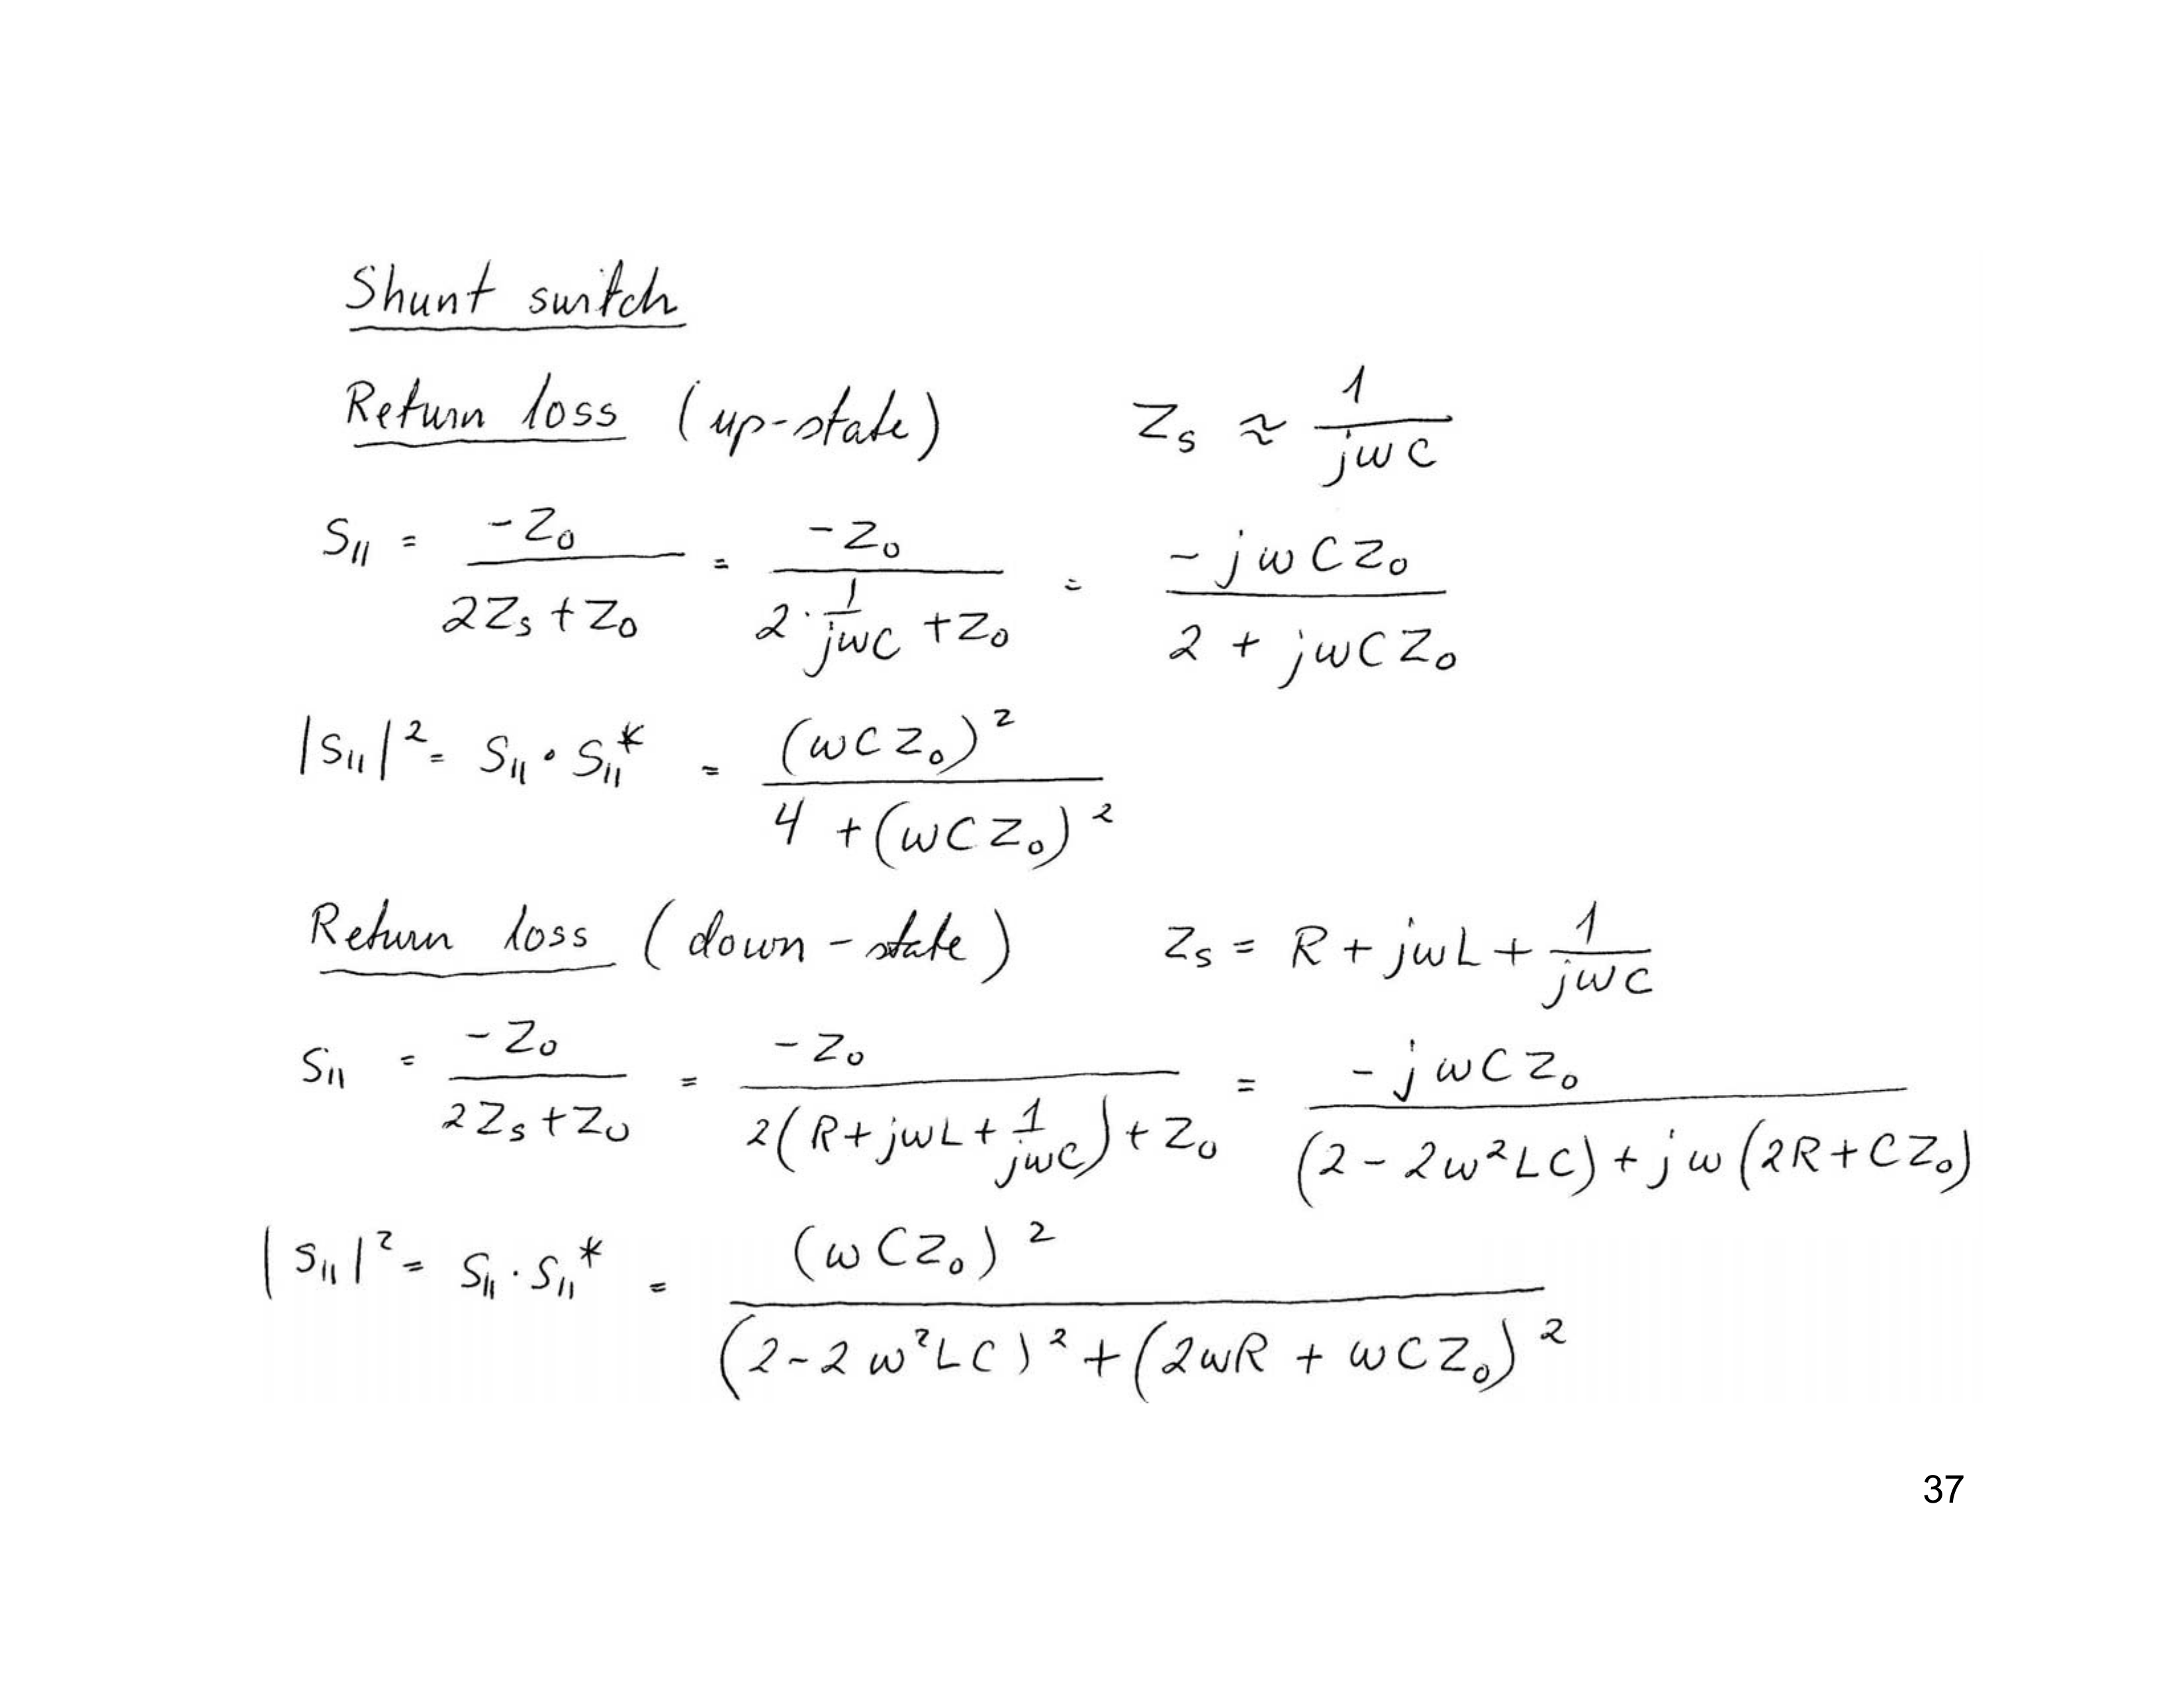 Shunt switch
Return loss (up-state) Z_S ≈ 1/(jωC)
S_11 = -Z_0/(2Z_S + Z_0) = -Z_0/(2·1/(jωC) + Z_0) = -jωCZ_0/(2 + jωCZ_0)
|S_11|^2 = S_11 · S_11^* = (ωCZ_0)^2/(4 + (ωCZ_0)^2)
Return loss (down-state) Z_S = R + jωL + 1/(jωC)
S_11 = -Z_0/(2Z_S + Z_0) = -Z_0/(2(R + jωL + 1/(jωC)) + Z_0) = -jωCZ_0/((2 - 2ω^2LC) + jω(2R + CZ_0))
|S_11|^2 = S_11 · S_11^* = (ωCZ_0)^2/((2 - 2ω^2LC)^2 + (2ωR + ωCZ_0)^2)
37